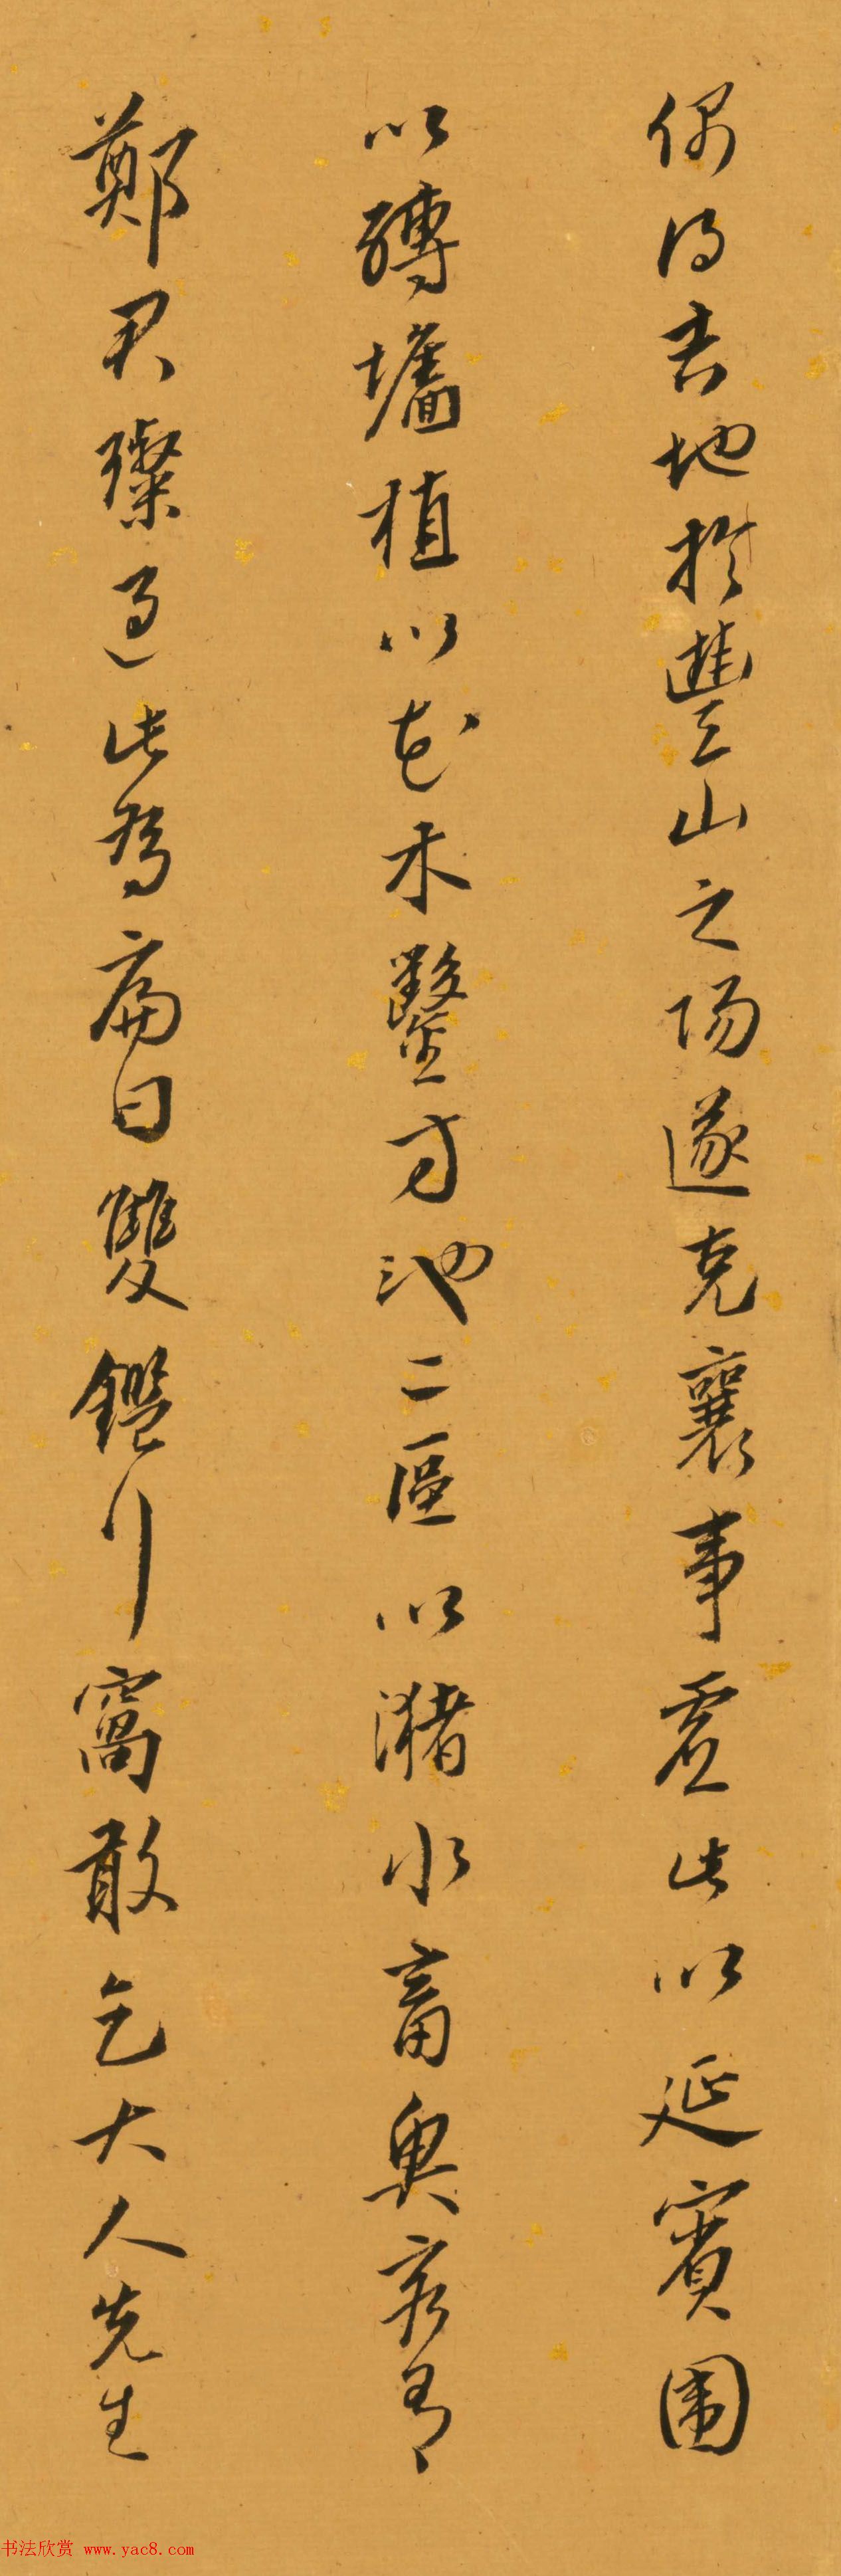 偶得吉地於豐山之陽遂克襄事虛此以延賓圍
以磚墻植以花木鑿方池二區以瀦水畜奧容有
鄭君璨過此為扁曰雙鑑行窩敢乞大人先生
书法欣赏 www.yac8.com